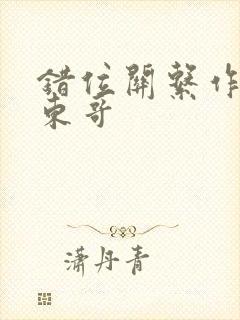 錯位關繫作
東哥
瀟丹青